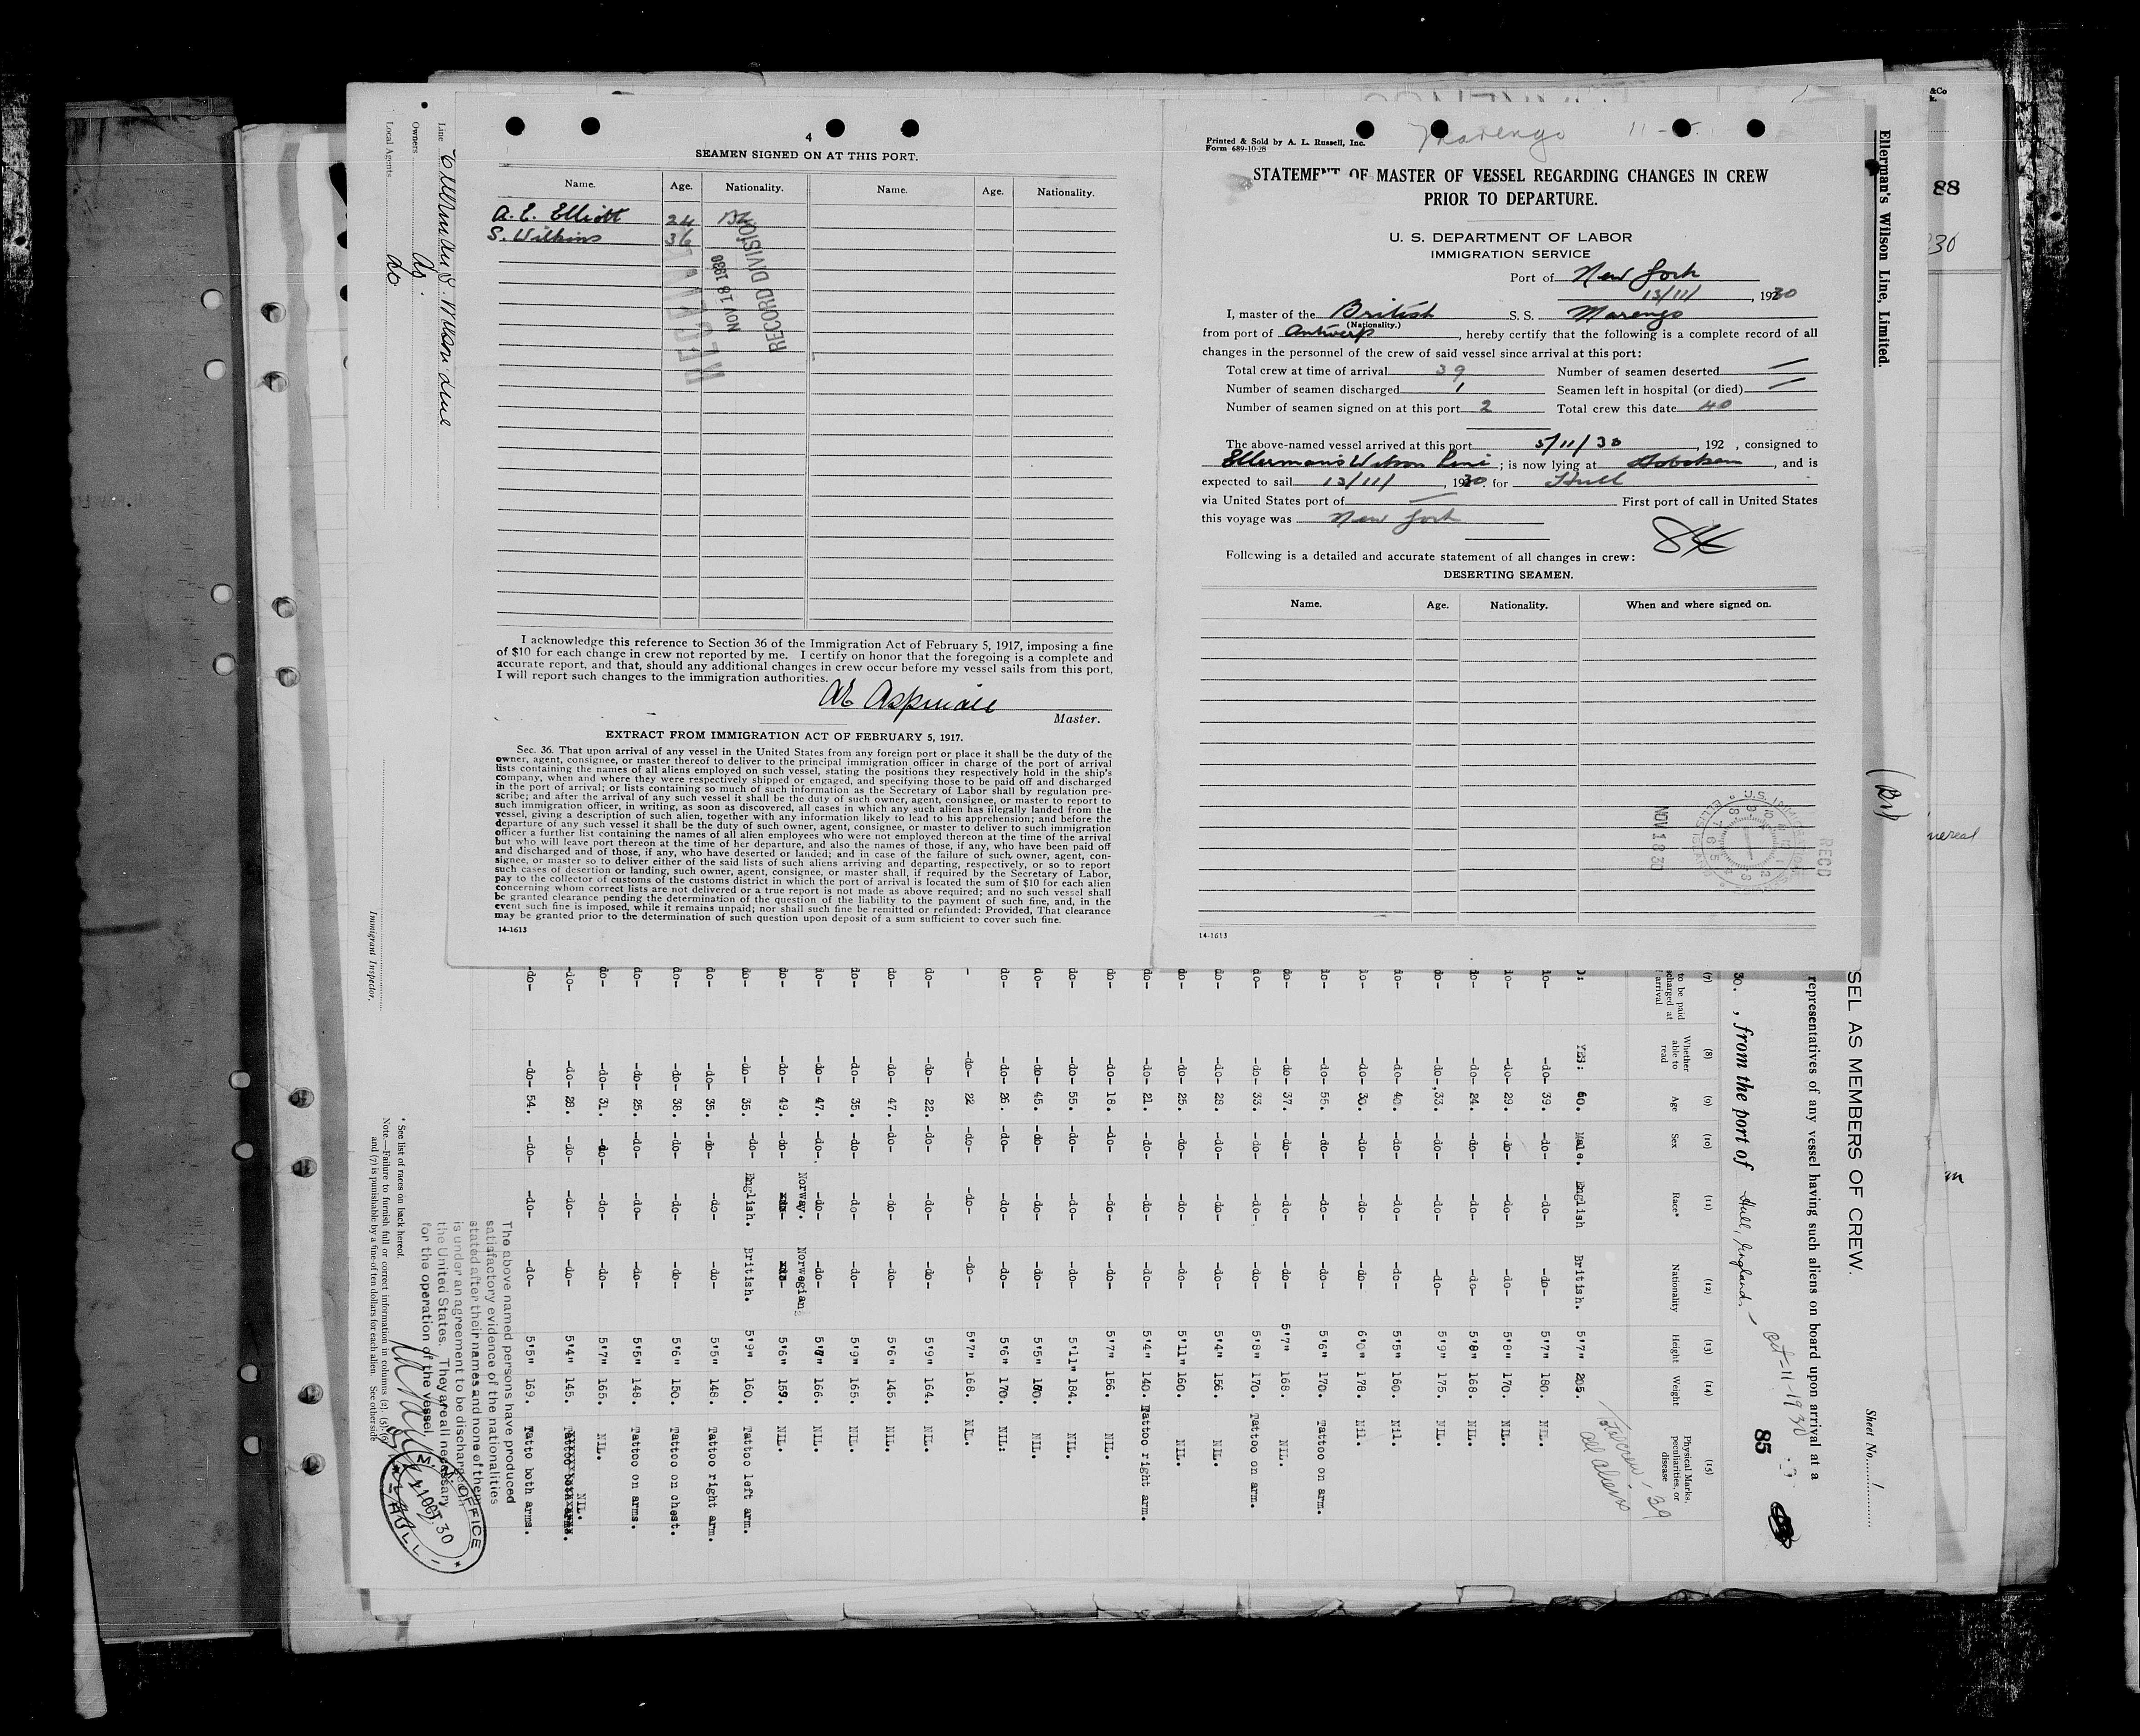 4
SEAMEN SIGNED ON AT THIS PORT.
Name. Age. Nationality. Name. Age. Nationality.
A. E. Elliott 24 Br
S. Wilkins 36
RECEIVED
NOV 18 1930
RECORD DIVISION
I acknowledge this reference to Section 36 of the Immigration Act of February 5, 1917, imposing a fine
of $10 for each change in crew not reported by me. I certify on honor that the foregoing is a complete and
accurate report, and that, should any additional changes in crew occur before my vessel sails from this port,
I will report such changes to the immigration authorities.
AE Aspinall
Master.
EXTRACT FROM IMMIGRATION ACT OF FEBRUARY 5, 1917.
Sec. 36. That upon arrival of any vessel in the United States from any foreign port or place it shall be the duty of the
owner, agent, consignee, or master thereof to deliver to the principal immigration officer in charge of the port of arrival
lists containing the names of all aliens employed on such vessel, stating the positions they respectively hold in the ship's
company, when and where they were respectively shipped or engaged, and specifying those to be paid off and discharged
in the port of arrival; or lists containing so much of such information as the Secretary of Labor shall by regulation pre-
scribe; and after the arrival of any such vessel it shall be the duty of such owner, agent, consignee, or master to report to
such immigration officer, in writing, as soon as discovered, all cases in which any such alien has illegally landed from the
vessel, giving a description of such alien, together with any information likely to lead to his apprehension; and before the
departure of any such vessel it shall be the duty of such owner, agent, consignee, or master to deliver to such immigration
officer a further list containing the names of all alien employees who were not employed thereon at the time of the arrival
but who will leave port thereon at the time of her departure, and also the names of those, if any, who have been paid off
and discharged and of those, if any, who have deserted or landed; and in case of the failure of such owner, agent, con-
signee, or master so to deliver either of the said lists of such aliens arriving and departing, respectively, or so to report
such cases of desertion or landing, such owner, agent, consignee, or master shall, if required by the Secretary of Labor,
pay to the collector of customs of the customs district in which the port of arrival is located the sum of $10 for each alien
concerning whom correct lists are not delivered or a true report is not made as above required; and no such vessel shall
be granted clearance pending the determination of the question of the liability to the payment of such fine, and, in the
event such fine is imposed, while it remains unpaid; nor shall such fine be remitted or refunded: Provided, That clearance
may be granted prior to the determination of such question upon deposit of a sum sufficient to cover such fine.
14-1613
Marengo 11-
Printed & Sold by A. L. Russell, Inc.
Form 689-10-28
STATEMENT OF MASTER OF VESSEL REGARDING CHANGES IN CREW
PRIOR TO DEPARTURE.
U. S. DEPARTMENT OF LABOR
IMMIGRATION SERVICE
Port of New York
13/11/, 1930
I, master of the British S. S. Marengo
(Nationality.)
from port of Antwerp, hereby certify that the following is a complete record of all
changes in the personnel of the crew of said vessel since arrival at this port:
Total crew at time of arrival 39 Number of seamen deserted —
Number of seamen discharged 1 Seamen left in hospital (or died) —
Number of seamen signed on at this port 2 Total crew this date 40
The above-named vessel arrived at this port 5/11/30, 192 , consigned to
Ellerman's Wilson Line; is now lying at Hoboken, and is
expected to sail 13/11/, 1930. for Hull
via United States port of — First port of call in United States
this voyage was New York
84
Following is a detailed and accurate statement of all changes in crew:
DESERTING SEAMEN.
Name. Age. Nationality. When and where signed on.
NOV 18 30
U.S. IMMIGRATION
ELLIS ISLAND
RECD
14-1613
Line Ellerman's Wilson Line
Owners do.
Local Agents do
Immigrant Inspector.
Ellerman's Wilson Line, Limited.
(Br)
88
Sheet No. 1
SEL AS MEMBERS OF CREW.
representatives of any vessel having such aliens on board upon arrival at a
30. , from the port of Hull, England, - Oct-11-1930
85
(7) (8) (9) (10) (11) (12) (13) (14) (15)
to be paid
charged at
arrival
Whether able to read
Age
Sex
Race*
Nationality
Height
Weight
Physical Marks, peculiarities, or disease
39
all aliens
YES: 60. Male. English British. 5'7" 205.
-do- 39. -do- -do- -do- 5'7" 180. NIL.
-do- 29. -do- -do- -do- 5'8" 170. NIL.
-do- 24. -do- -do- -do- 5'8" 168. NIL.
-do- 33. -do- -do- -do- 5'9" 175. NIL.
-do- 40. -do- -do- -do- 5'5" 160. Nil.
-do- 30. -do- -do- -do- 6'0" 178. Nil.
-do- 55. -do- -do- -do- 5'6" 170. Tattoo on arm.
-do- 37. -do- -do- -do- 5'7" 168. NIL.
-do- 33. -do- -do- -do- 5'8" 170. Tattoo on arm.
-do- 28. -do- -do- -do- 5'4" 156. NIL.
-do- 25. -do- -do- -do- 5'11" 160. NIL.
-do- 21. -do- -do- -do- 5'4" 140. Tattoo right arm.
-do- 18. -do- -do- -do- 5'7" 156. NIL.
-do- 55. -do- -do- -do- 5'11" 184. NIL.
-do- 45. -do- -do- -do- 5'5" NIL.
-do- 26. -do- -do- -do- 5'6" 170. NIL:
-do- 22 -do- -do- -do- 5'7" 168. NIL.
-do- 22. -do- -do- -do- 5'9" 164. NIL.
-do- 47. -do- -do- -do- 5'6" 145. NIL.
-do- 35. -do- -do- -do- 5'9" 165. NIL.
-do- 47. -do- -do- -do- 5'7" 166. NIL.
-do- 49. -do- Norway. Norwegian. 5'6" NIL.
-do- 35. -do- English. British. 5'9" 160. Tattoo left arm.
-do- 35. -do- -do- -do- 5'5" 148. Tattoo right arm.
-do- 38. -do- -do- -do- 5'6" 150. Tattoo on chest.
-do- 25. -do- -do- -do- 5'5" 148. Tattoo on arms.
-do- 31. -do- -do- -do- 5'7" 165. NIL.
-do- 28. -do- -do- -do- 5'4" 145. NIL.
-do- 54. -do- -do- -do- 5'5" 169. Tatto both arms.
The above named persons have produced
satisfactory evidence of the nationalities
stated after their names and none of them
is under an agreement to be discharged in
the United States. They are all necessary
for the operation of the vessel.
* See list of races on back hereof.
Note.—Failure to furnish full or correct information in columns (2), (5), (6)
and (7) is punishable by a fine of ten dollars for each alien. See other side